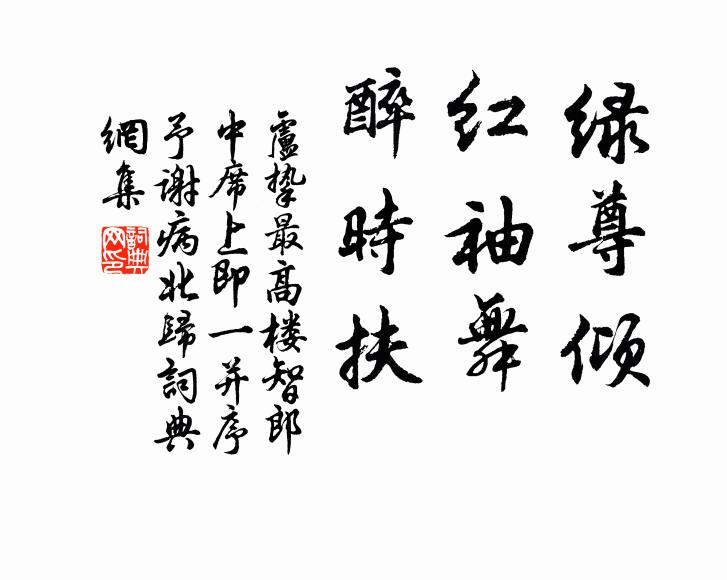 绿尊倾
红袖舞
醉時扶
盧挚最高楼智郎
中席上即一并序
予谢病北歸詞典
網集
詞典网印